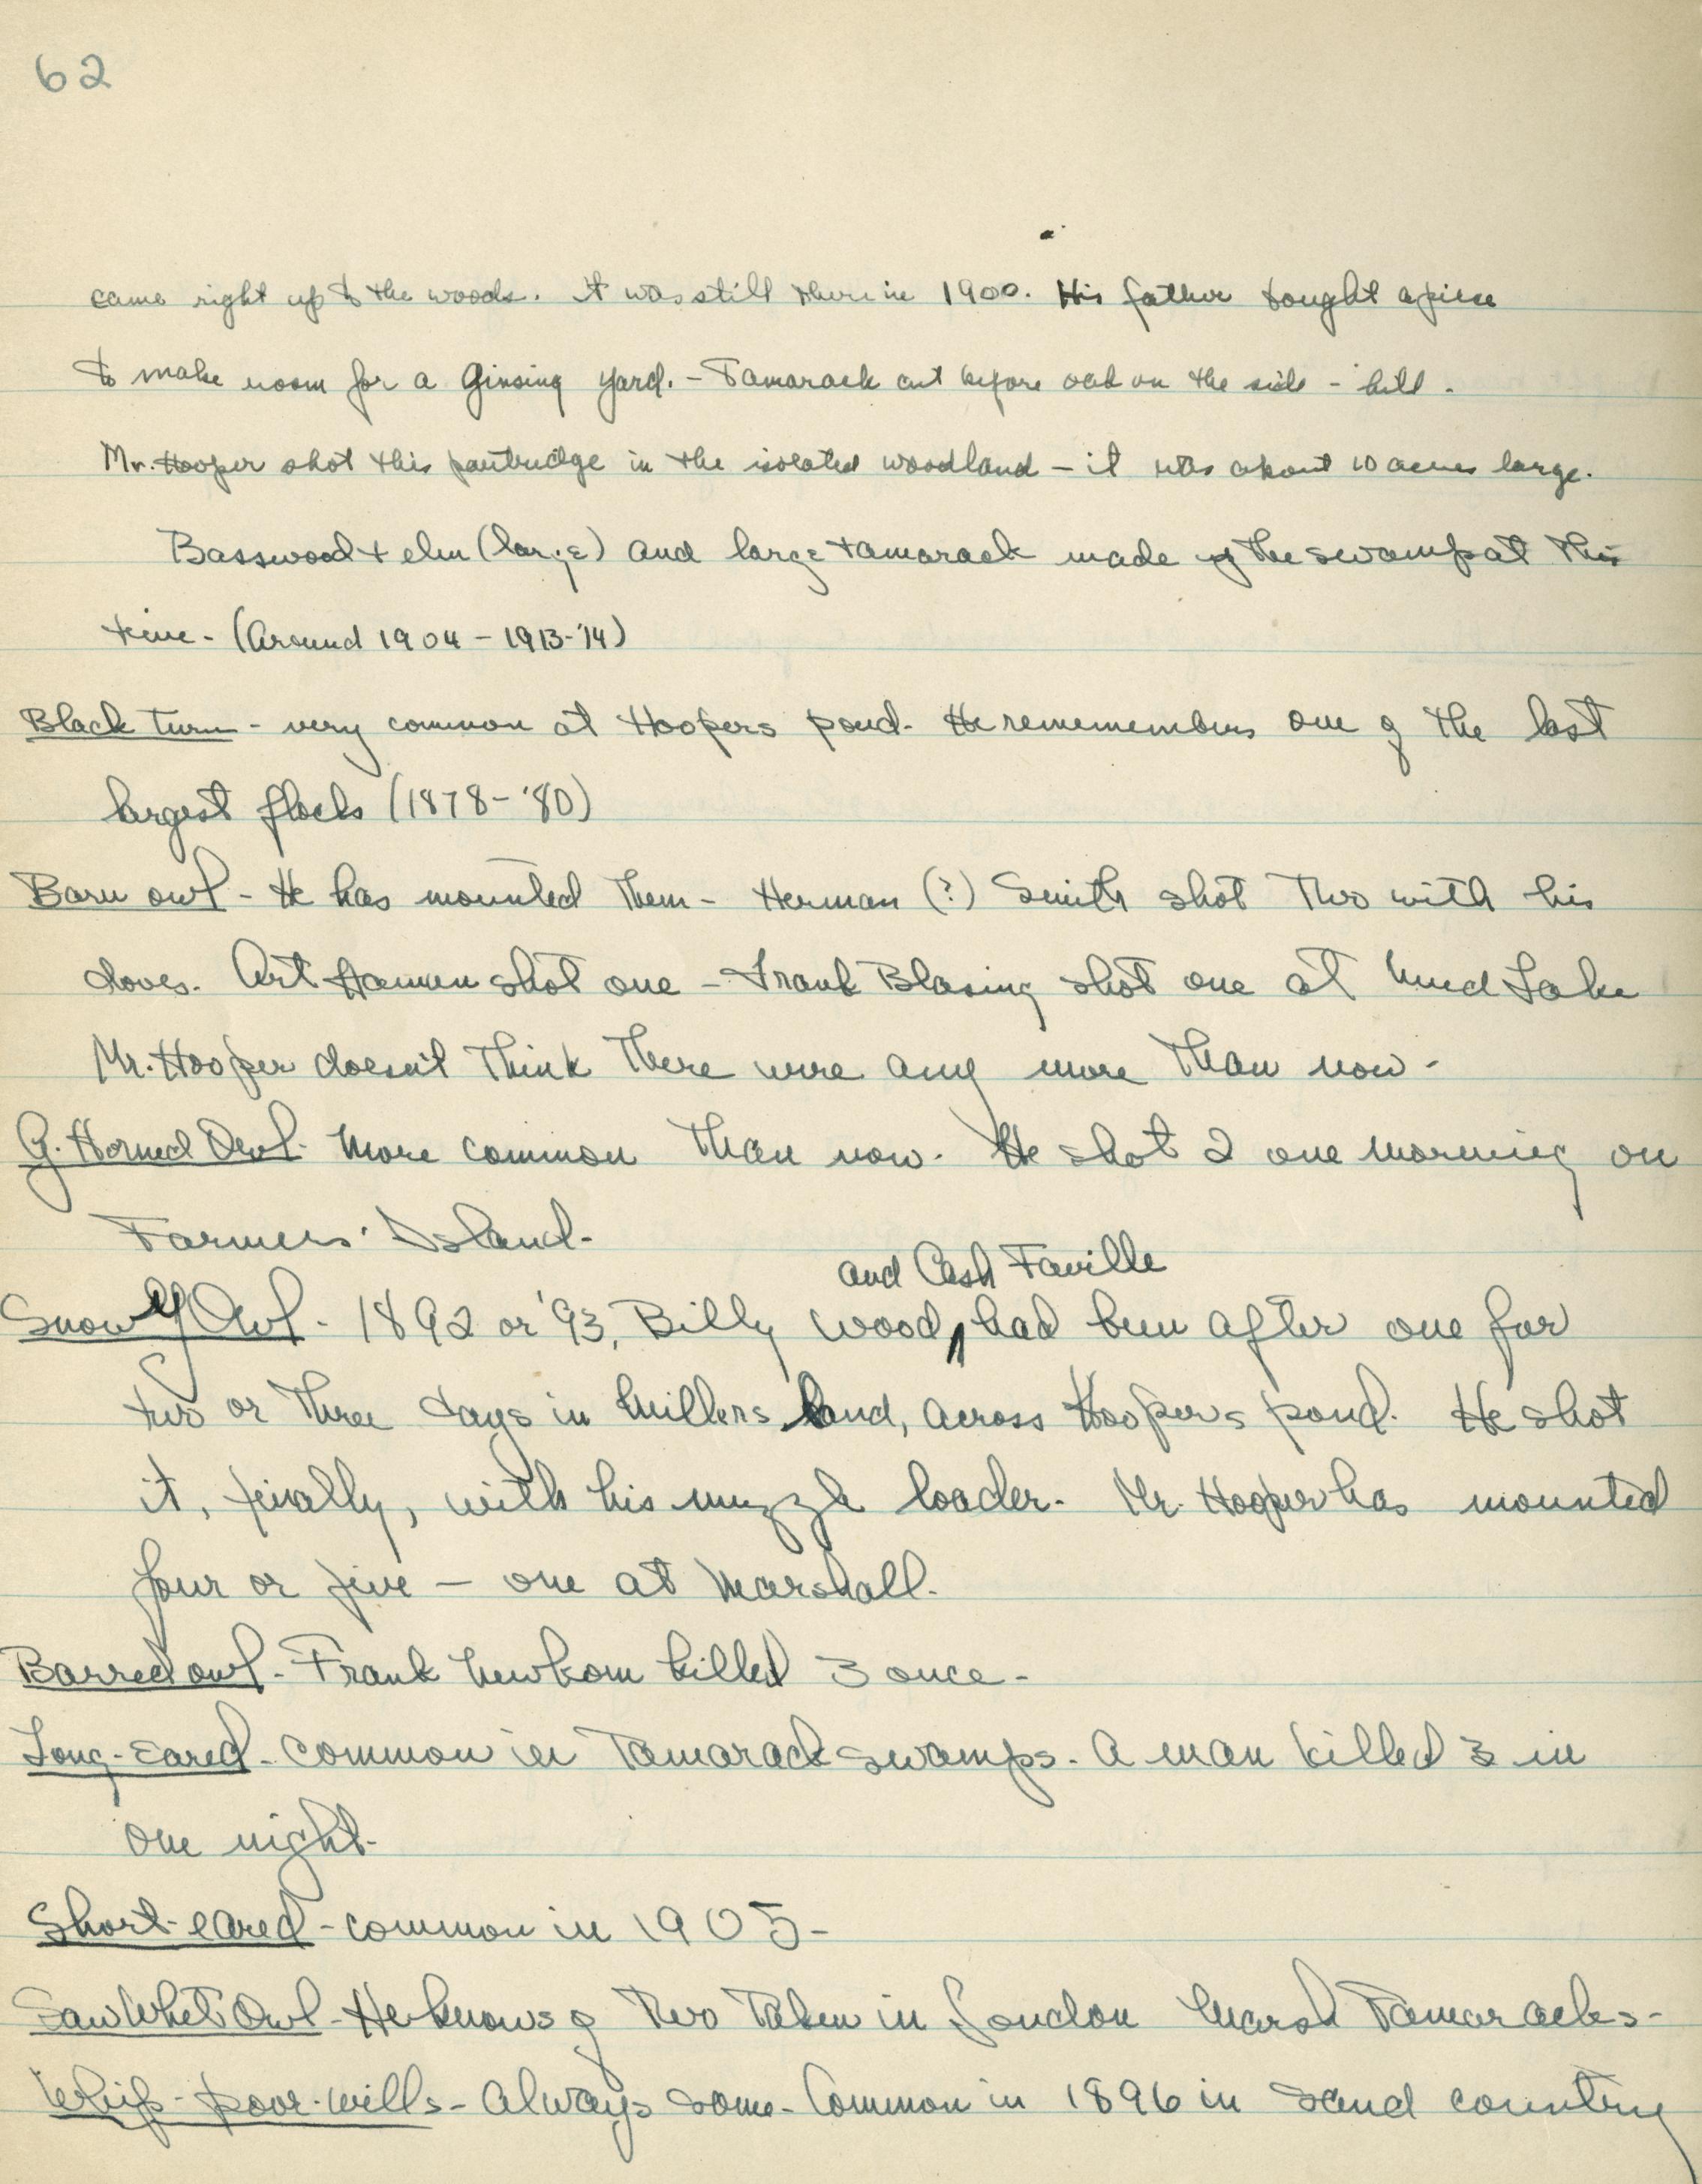 62
came right up to the woods. It was still there in 1900. His father bought a piece
to make room for a Ginsing yard. - Tamarack cut before oak on the side - hill.
Mr. Hooper shot this partridge in the isolated woodland - it was about 10 acres large.
Basswood + elm (large) and large tamarack made up the swamp at this
time - (Around 1904 - 1913-'14)
Black turn - very common at Hoopers pond. He rememembers one of the last
largest flocks (1878-'80)
Barn owl - He has mounted them - Herman (?) Smith shot two with his
doves. Art Hamen shot one - Frank Blasing shot one at Mud Lake
Mr. Hooper doesn't think there were any more than now -
G. Horned Owl - More common than now. He shot 2 one morning on
Farmers' Island -
and Cash Faville
Snowy Owl - 1892 or '93, Billy Wood, had been after one for
two or three days in Millers land, across Hoopers pond. He shot
it, finally, with his muzzle loader - Mr. Hooper has mounted
four or five - one at Marshall.
Barred owl - Frank Newkom killed 3 once -
Long-Eared - common in Tamarack swamps - A man killed 3 in
one night -
Short-eared - common in 1905 -
Saw Whet Owl - He knows of two taken in London Marsh Tamaracks -
Whip-poor-wills - Always some - Common in 1896 in sand country